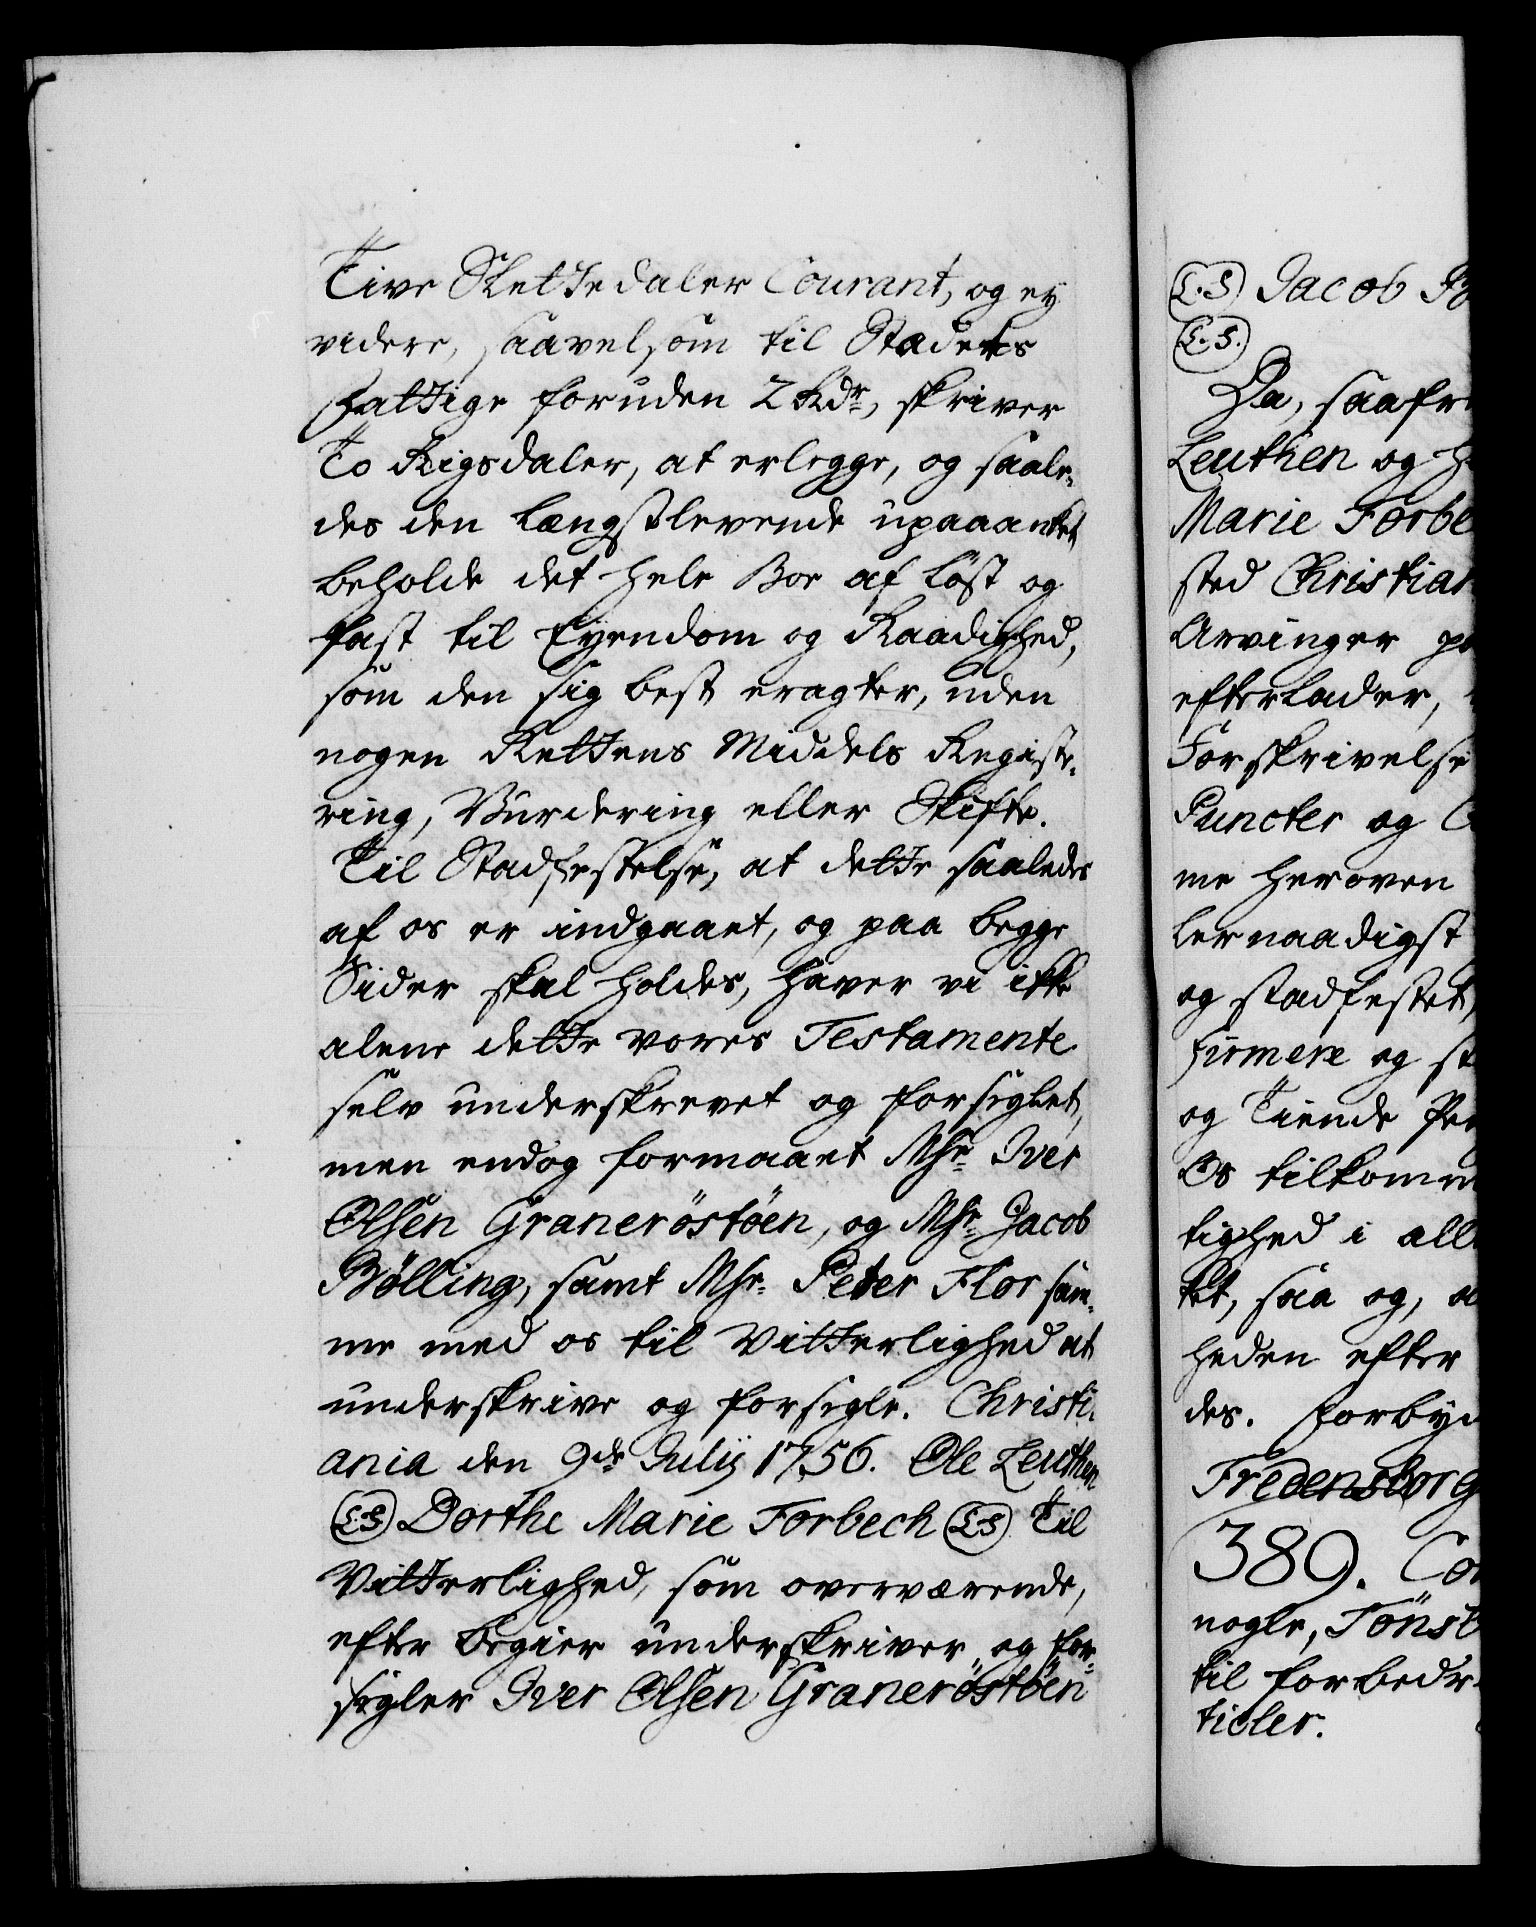 Tive Slettedaler Courant, og ey
videre, saavelsom til Stadens
fattige foruden 2 Rdr, skriver
To Rigsdaler, at erlegge, og saale-
des den længstlevende upaaanket
beholde det hele Boe af löst og
fast til Eyendom og Raadighed,
som den sig best eragter, uden
nogen Rettens Middels Registe-
ring, Vurdering eller Skifte.
Til Stadfestelse, at dette saaledes
af os er indgaaet, og paa begge
Sider skal holdes, haver vi ikke
alene dette vores Testamente
selv underskrevet og forsiglet,
men endog formaaet Msr Iver
Olsen Graneröstöen, og Msr Jacob
Bølling, samt Msr Peter Flor sam-
me med os til Vitterlighed at
underskrive og forsigle. Christi-
ania den 9de Julij 1756. Ole Leuthen
(L.S) Dorthe Marie Forbech (L.S) Til
Vitterlighed, som overværende,
efter Begier underskriver og for-
sigler Iver Olsen Graneröstöen
(L.S) Jacob
(L.S.)
Da, saafr
Leuthen og
Marie Forbe
sted Christian
Arvinger
efterlader,
Forskrivelse
Puncter og
me heroven
lernaadigst
og stadfestet,
firmere og st
og Tiende Pe
Os tilkomm
tighed i all
tet, saa og, a
heden efter
des. Forbyd
Fredensborg
389. Con
nogle, Tönsb
til forbedr
ticler.